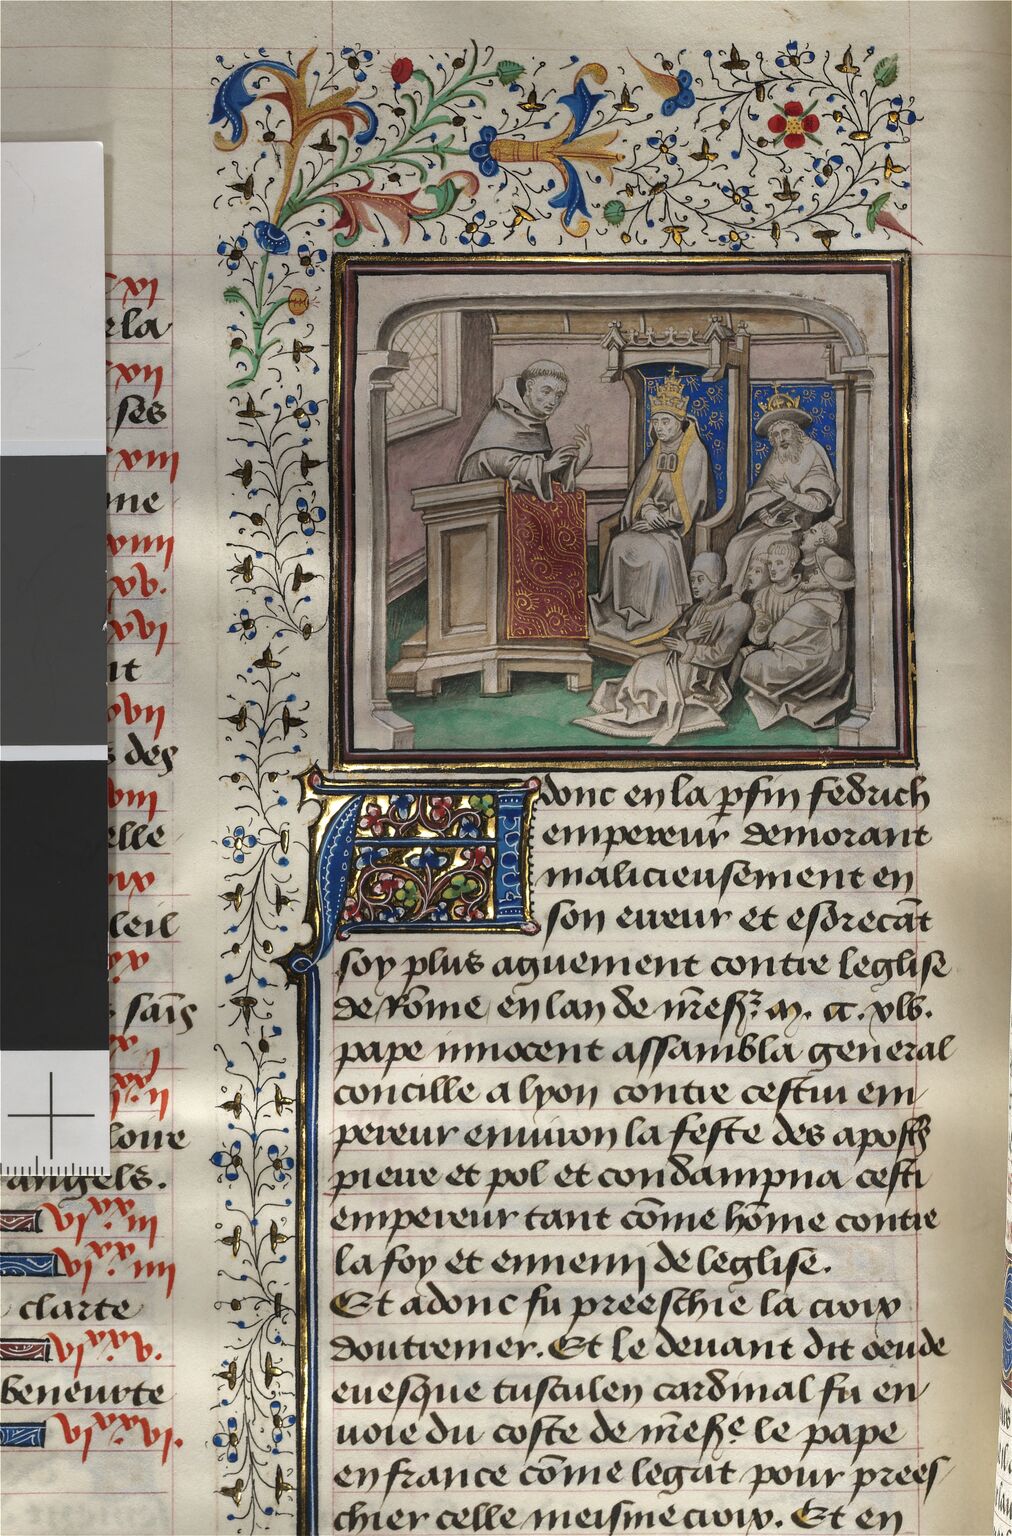 xi
ela
xii
ses
xiii
me
xiiii
xv.
xvi
nt
xvii
s des
elle
xix
leil
xx
s sais
loue
angels.
clarte
beneurte
Adonc en la psin fedrich
empereur demorant
malicieusement en
son eueur et esdrecāt
soy plus aguement contre leglise
de Rōme, en lan de
pape innocent assambla general
concille a lyon contre cestui em
pereur enuiron la feste des
pierre et pol et condampna cesti
empereur tant cōme hōme contre
la foy et ennemi de leglise.
Et adonc fu preeschie la croix
doutremer. Et le deuant dit oeude
euesque tusculen cardinal fu en
uoie du coste de le pape
en france cōme legat pour prees
chier celle meisme croix. Et en